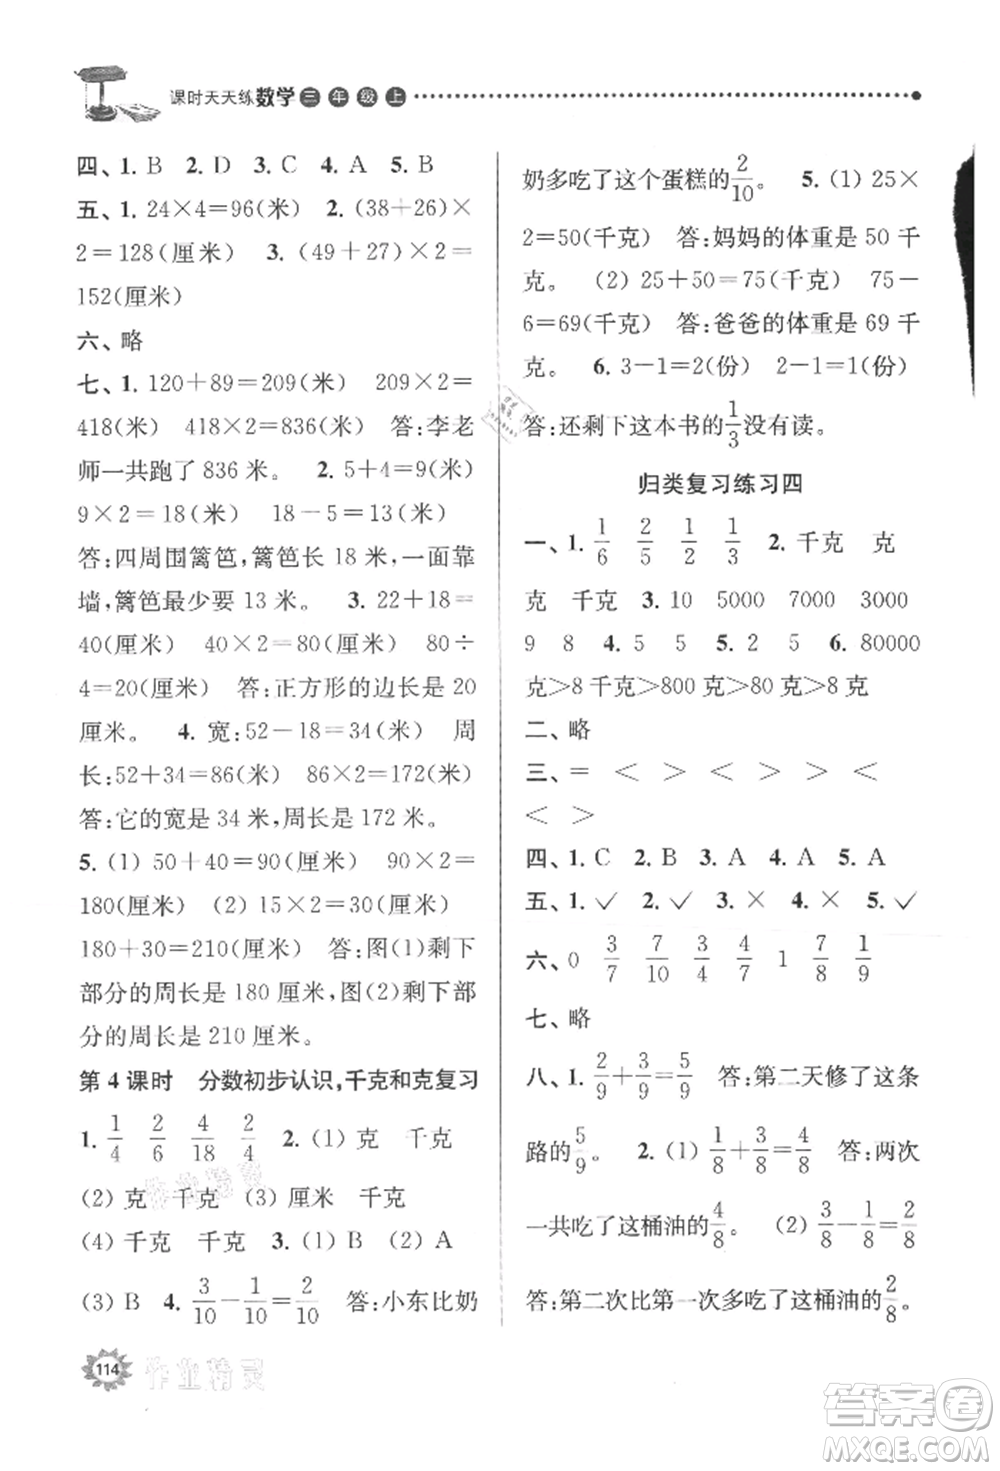 课时天天练数学三年级上
四、1. B 2. D 3. C 4. A 5. B
五、1. 24×4=96(米) 2. (38+26)×
2=128(厘米) 3. (49+27)×2=
152(厘米)
六、略
七、1. 120+89=209(米) 209×2=
418(米) 418×2=836(米) 答:李老
师一共跑了 836 米。 2. 5+4=9(米)
9×2=18(米) 18-5=13(米)
答:四周围篱笆,篱笆长 18 米,一面靠
墙,篱笆最少要 13 米。 3. 22+18=
40(厘米) 40×2=80(厘米) 80÷
4=20(厘米) 答:正方形的边长是 20
厘米。 4. 宽:52-18=34(米) 周
长:52+34=86(米) 86×2=172(米)
答:它的宽是 34 米,周长是 172 米。
5. (1) 50+40=90(厘米) 90×2=
180(厘米) (2) 15×2=30(厘米)
180+30=210(厘米) 答:图(1)剩下
部分的周长是 180 厘米,图(2)剩下部
分的周长是 210 厘米。
第 4 课时 分数初步认识,千克和克复习
1. 1/4 2/6 4/18 2/4 2. (1) 克 千克
(2) 克 千克 (3) 厘米 千克
(4) 千克 千克 3. (1) B (2) A
(3) B 4. 3/10-1/10=2/10 答:小东比奶
奶多吃了这个蛋糕的2/10。 5. (1) 25×
2=50(千克) 答:妈妈的体重是 50 千
克。 (2) 25+50=75(千克) 75-
6=69(千克) 答:爸爸的体重是 69 千
克。 6. 3-1=2(份) 2-1=1(份)
答:还剩下这本书的1/3没有读。
归类复习练习四
一、1. 1/6 2/5 1/2 1/3 2. 千克 克
克 千克 3. 10 5000 7000 3000
9 8 4. 5 5 5. 2 5 6. 80000
克>8 千克>800 克>80 克>8 克
二、略
三、= < > > > <
< >
四、1. C 2. B 3. A 4. A 5. A
五、1. ✓ 2. ✓ 3. × 4. × 5. ✓
六、0 3/7 7/10 3/4 4/7 1 7/8 1/9
七、略
八、1. 2/9+3/9=5/9 答:第二天修了这条
路的5/9。 2. (1) 1/8+3/8=4/8 答:两次
一共吃了这桶油的4/8。 (2) 3/8-1/8=2/8
答:第二次比第一次多吃了这桶油的2/8。
114
作业精灵
答案卷
MXQE.COM